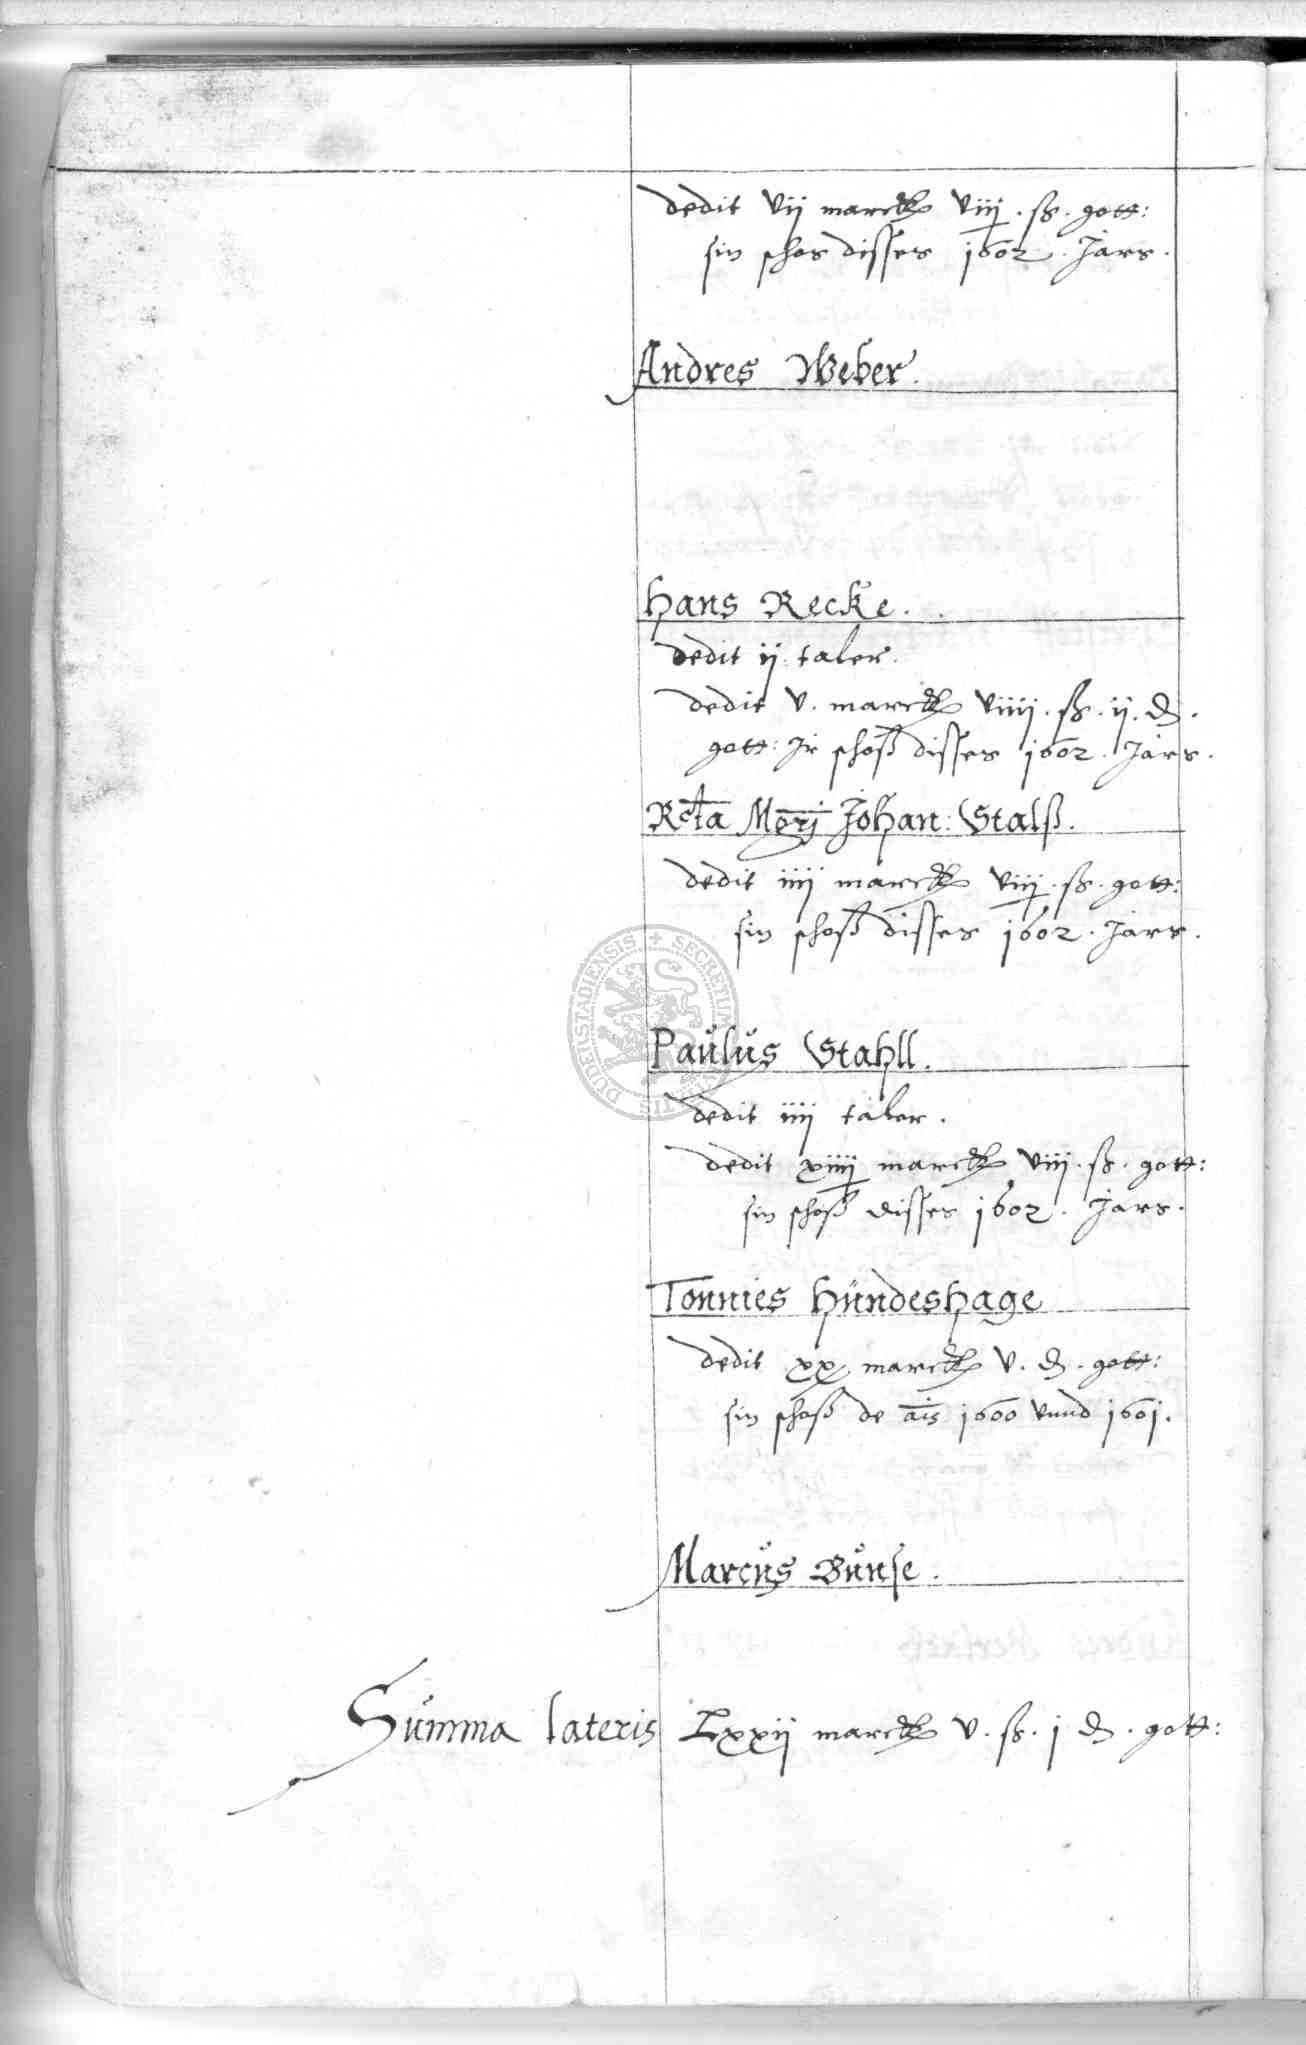 dedit vij marck viiij. ß. gott:
sin schos disses 1602. Jars.
Andres Weber.
Hans Recke.
dedit ij taler.
dedit v. marck viiij. ß. ij. d.
gott: Jr schoß disses 1602. Jars.
Rcta Mgrj Johan: Stalß.
dedit iiij marck viiij. ß. gott:
sin schoß disses 1602. Jars.
Paulus Stahll.
dedit iiij taler.
dedit xiiij marck viij. ß. gott:
sin schoß disses 1602. Jars.
Tonnies Hundeshage
dedit xx marck v. d. gott:
sin schoß de ais 1600 vnnd 1601.
Marcus Bunse.
Summa lateris Lxxij marck v. ß. j d. gott:
SECRETUM
DUDERSTADIENSIS